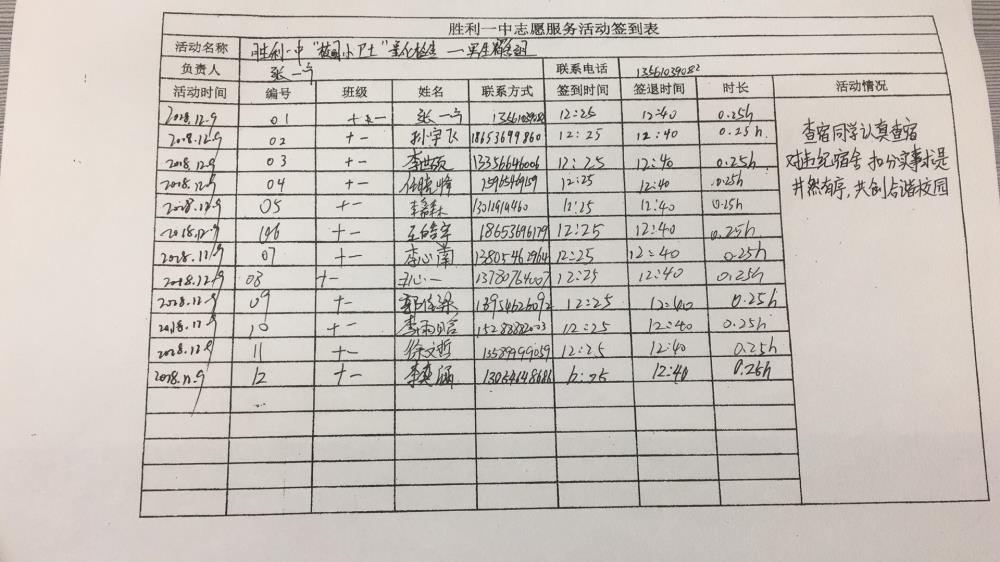 胜利一中志愿服务活动签到表
活动名称 胜利一中"校园小卫士"量化检查—男生宿舍
负责人 张一宁 联系电话 13561039082
活动时间 编号 班级 姓名 联系方式 签到时间 签退时间 时长 活动情况
2018.12.9 01 十一 张一宁 12:25 12:40 0.25h
2018.12.9 02 十一 孙宇飞 18653699860 12:25 12:40 0.25h
2018.12.9 03 十一 13356646006 12:25 12:40 0.25h
2018.12.9 04 十一 任晓峰 12:25 12:40 0.25h
2018.12.9 05 十一 12:25 12:40 0.25h
2018.12.9 06 十一 王皓宇 18653696179 12:25 12:40 0.25h
2018.12.9 07 十一 李心南 13805462964 12:25 12:40 0.25h
2018.12.9 08 十一 尹心一 13780764007 12:25 12:40 0.25h
2018.12.9 09 十一 13954626092 12:25 12:40 0.25h
2018.12.9 10 十一 李雨晗 12:25 12:40 0.25h
2018.12.9 11 十一 徐文哲 13589999059 12:25 12:40 0.25h
2018.12.9 12 十一 李奕涵 12:25 12:40 0.25h
查宿同学认真查宿
对违纪宿舍 扣分实事求是
井然有序,共创和谐校园